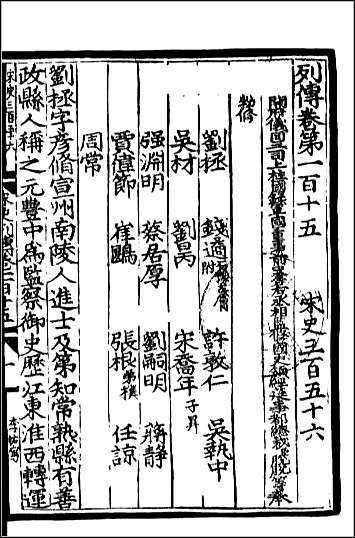 列傳卷第一百十五 宋史三百五十六
開府儀同三司上柱國錄軍國重事前中書右丞相監修國史領經筵事都總裁脫脫等奉
敕修
劉拯 錢遹 石豫 左膚附 許敦仁 吳執中
吳材 劉昺 宋喬年子昇
强淵明 蔡居厚 劉嗣明 蔣靜
賈偉節 崔鶠 張根弟樸 任諒
周常
劉拯字彦脩宣州南陵人進士及第知常熟縣有善
政縣人稱之元豐中為監察御史歷江東淮西轉運